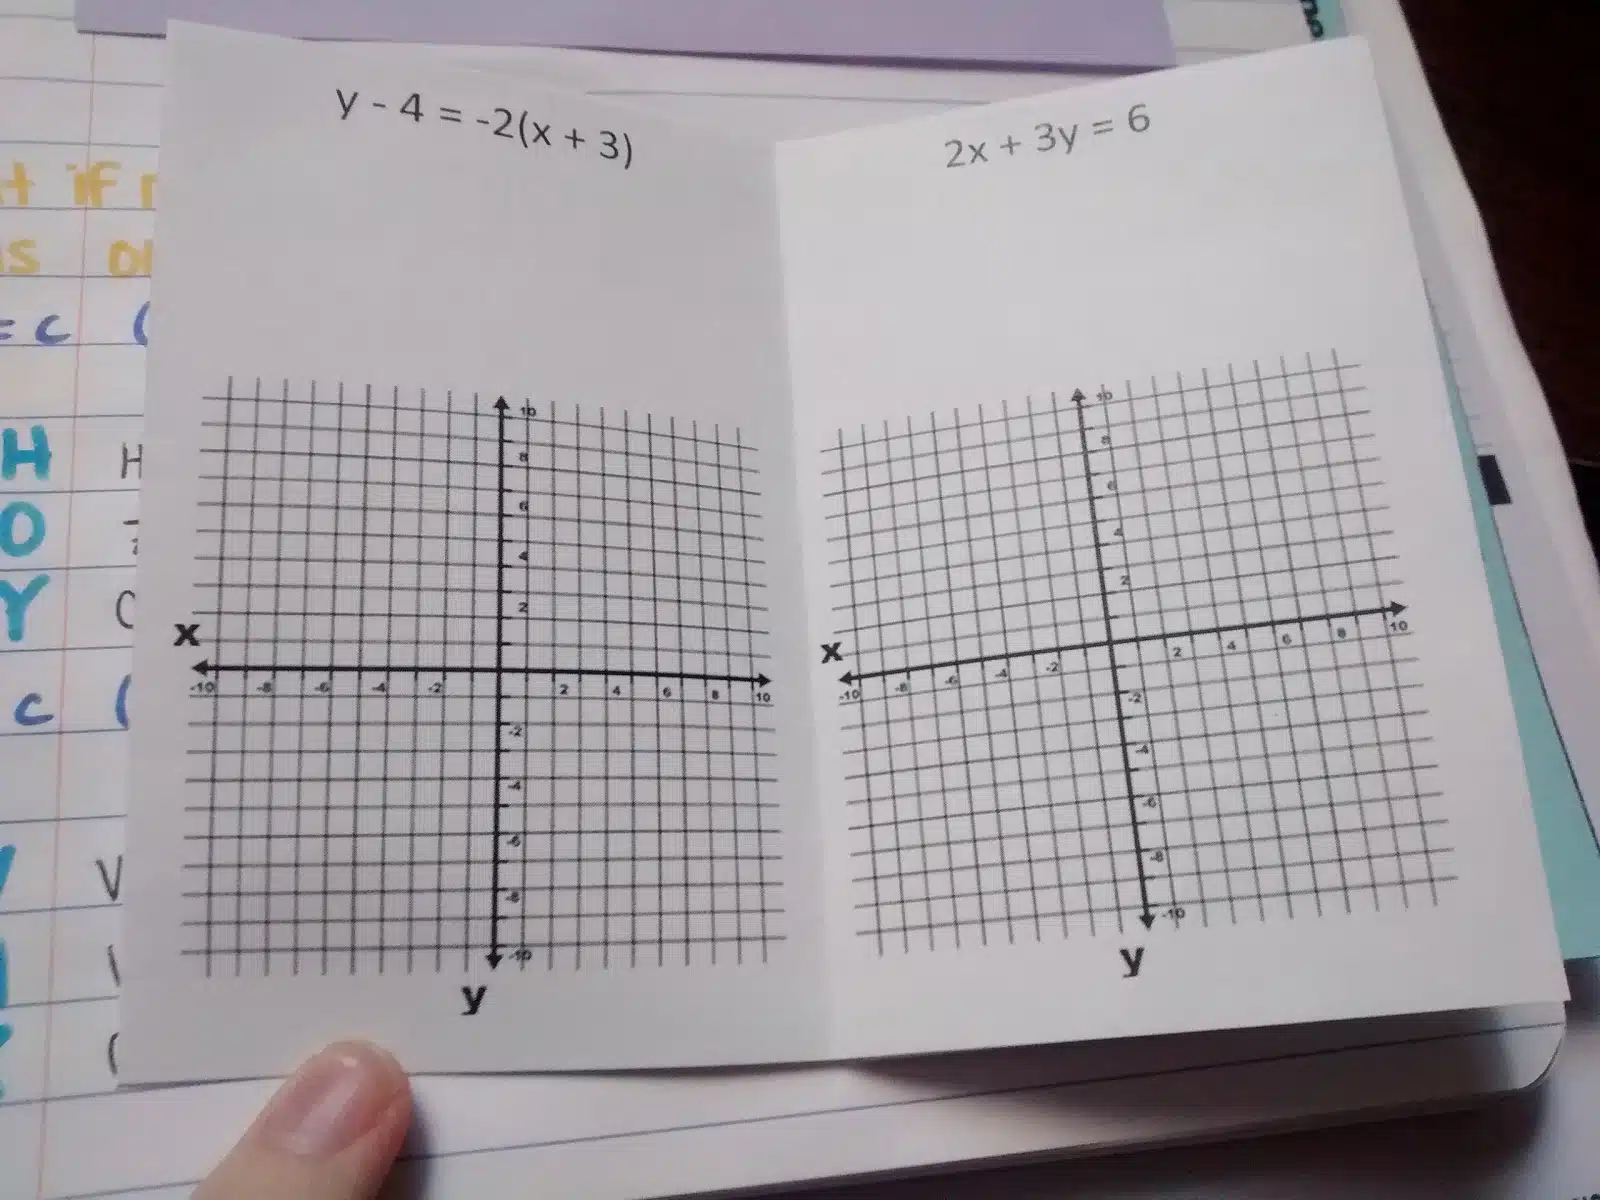 y - 4 = -2(x + 3)
10
8
6
4
2
x
-10 -8 -6 -4 -2 2 4 6 8 10
-2
-4
-6
-8
-10
y
2x + 3y = 6
10
8
6
4
2
x
-10 -8 -6 -4 -2 2 4 6 8 10
-2
-4
-6
-8
-10
y
t if
s
= c (
H H
O
Y
c (
V